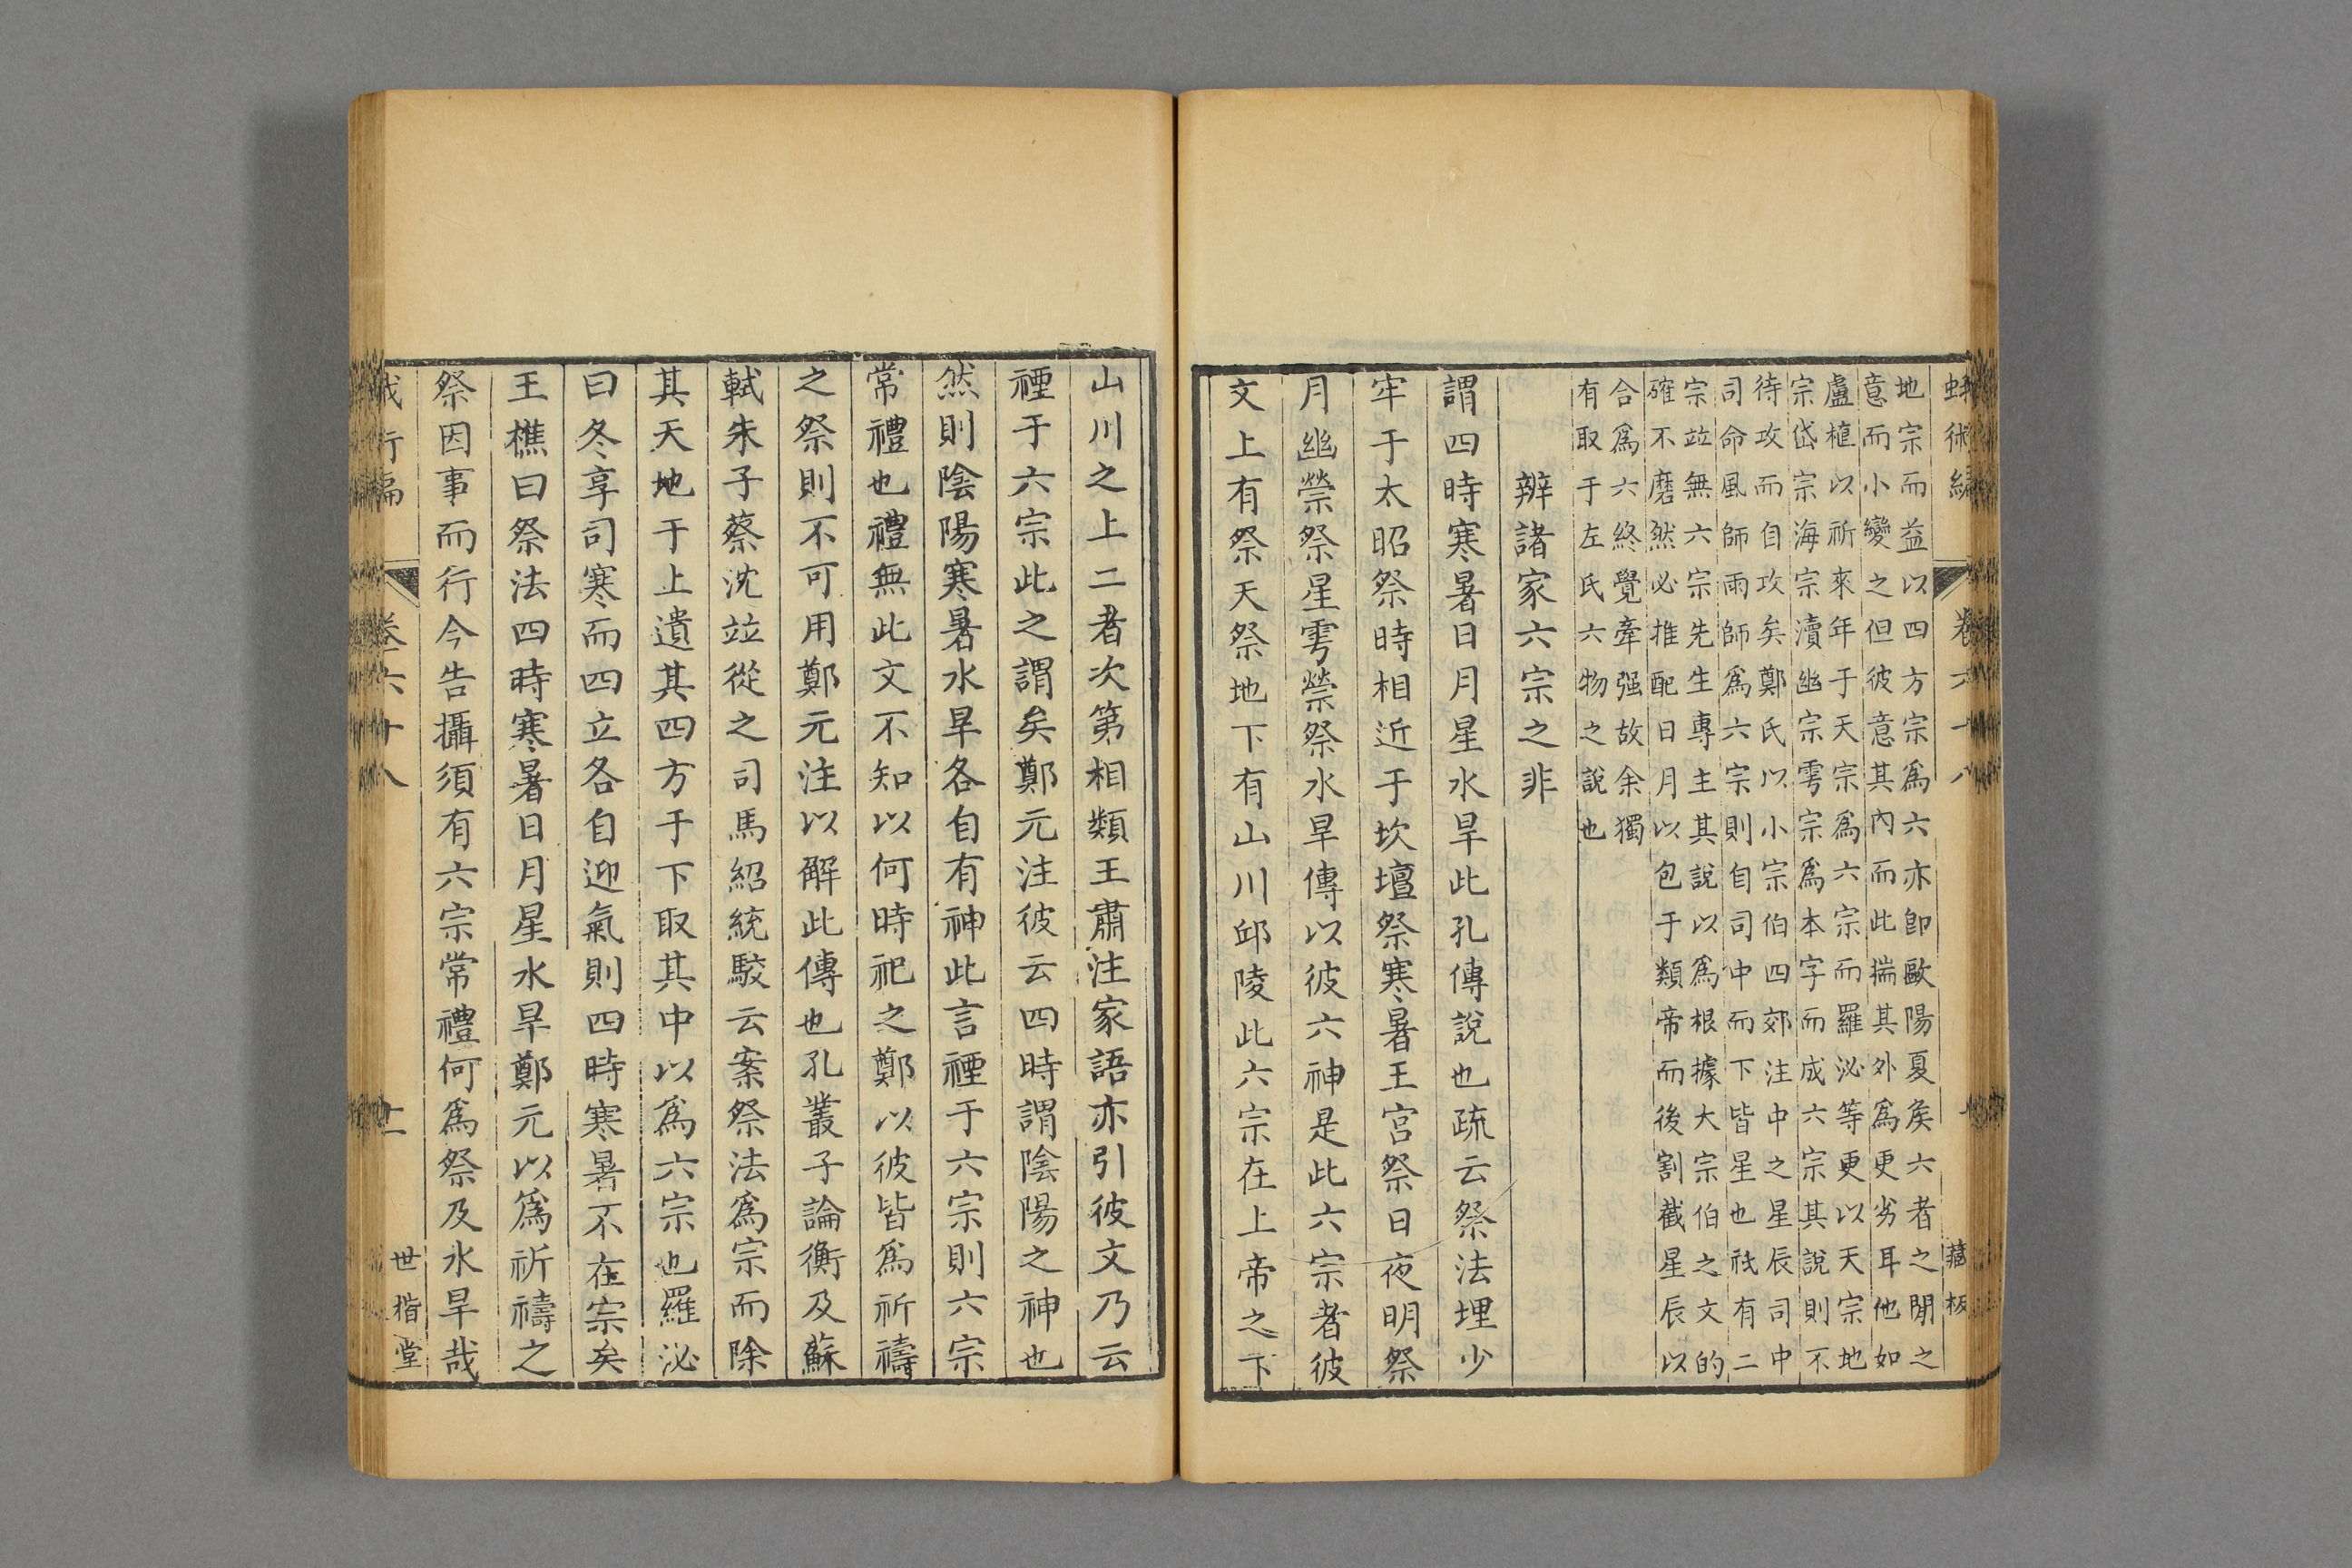 蛾術編 卷六十八 藏板
地宗而益以四方宗為六亦卽歐陽夏矦六者之閒之
意而小變之但彼意其內而此揣其外為更劣耳他如
盧植以祈來年于天宗為六宗而羅泌等更以天宗地
宗岱宗海宗瀆幽宗雩宗為本字而成六宗其說則不
待攻而自攻矣鄭氏以小宗伯四郊注中之星辰司中
司命風師雨師為六宗則自司中而下皆星也祇有二
宗竝無六宗先生專主其說以為根據大宗伯之文的
確不磨然必推配日月以包于類帝而後割截星辰以
合為六終覺牽强故余獨
有取于左氏六物之說也
辨諸家六宗之非
謂四時寒暑日月星水旱此孔傳說也疏云祭法埋少
牢于太昭祭時相近于坎壇祭寒暑王宮祭日夜明祭
月幽禜祭星雩禜祭水旱傳以彼六神是此六宗者彼
文上有祭天祭地下有山川邱陵此六宗在上帝之下
山川之上二者次第相類王肅注家語亦引彼文乃云
禋于六宗此之謂矣鄭元注彼云四時謂陰陽之神也
然則陰陽寒暑水旱各自有神此言禋于六宗則六宗
常禮也禮無此文不知以何時祀之鄭以彼皆為祈禱
之祭則不可用鄭元注以解此傳也孔叢子論衡及蘇
軾朱子蔡沈竝從之司馬紹統駮云案祭法為宗而除
其天地于上遺其四方于下取其中以為六宗也羅泌
曰冬享司寒而四立各自迎氣則四時寒暑不在宗矣
王樵曰祭法四時寒暑日月星水旱鄭元以為祈禱之
祭因事而行今告攝須有六宗常禮何為祭及水旱哉
蛾術編 卷六十八 世楷堂